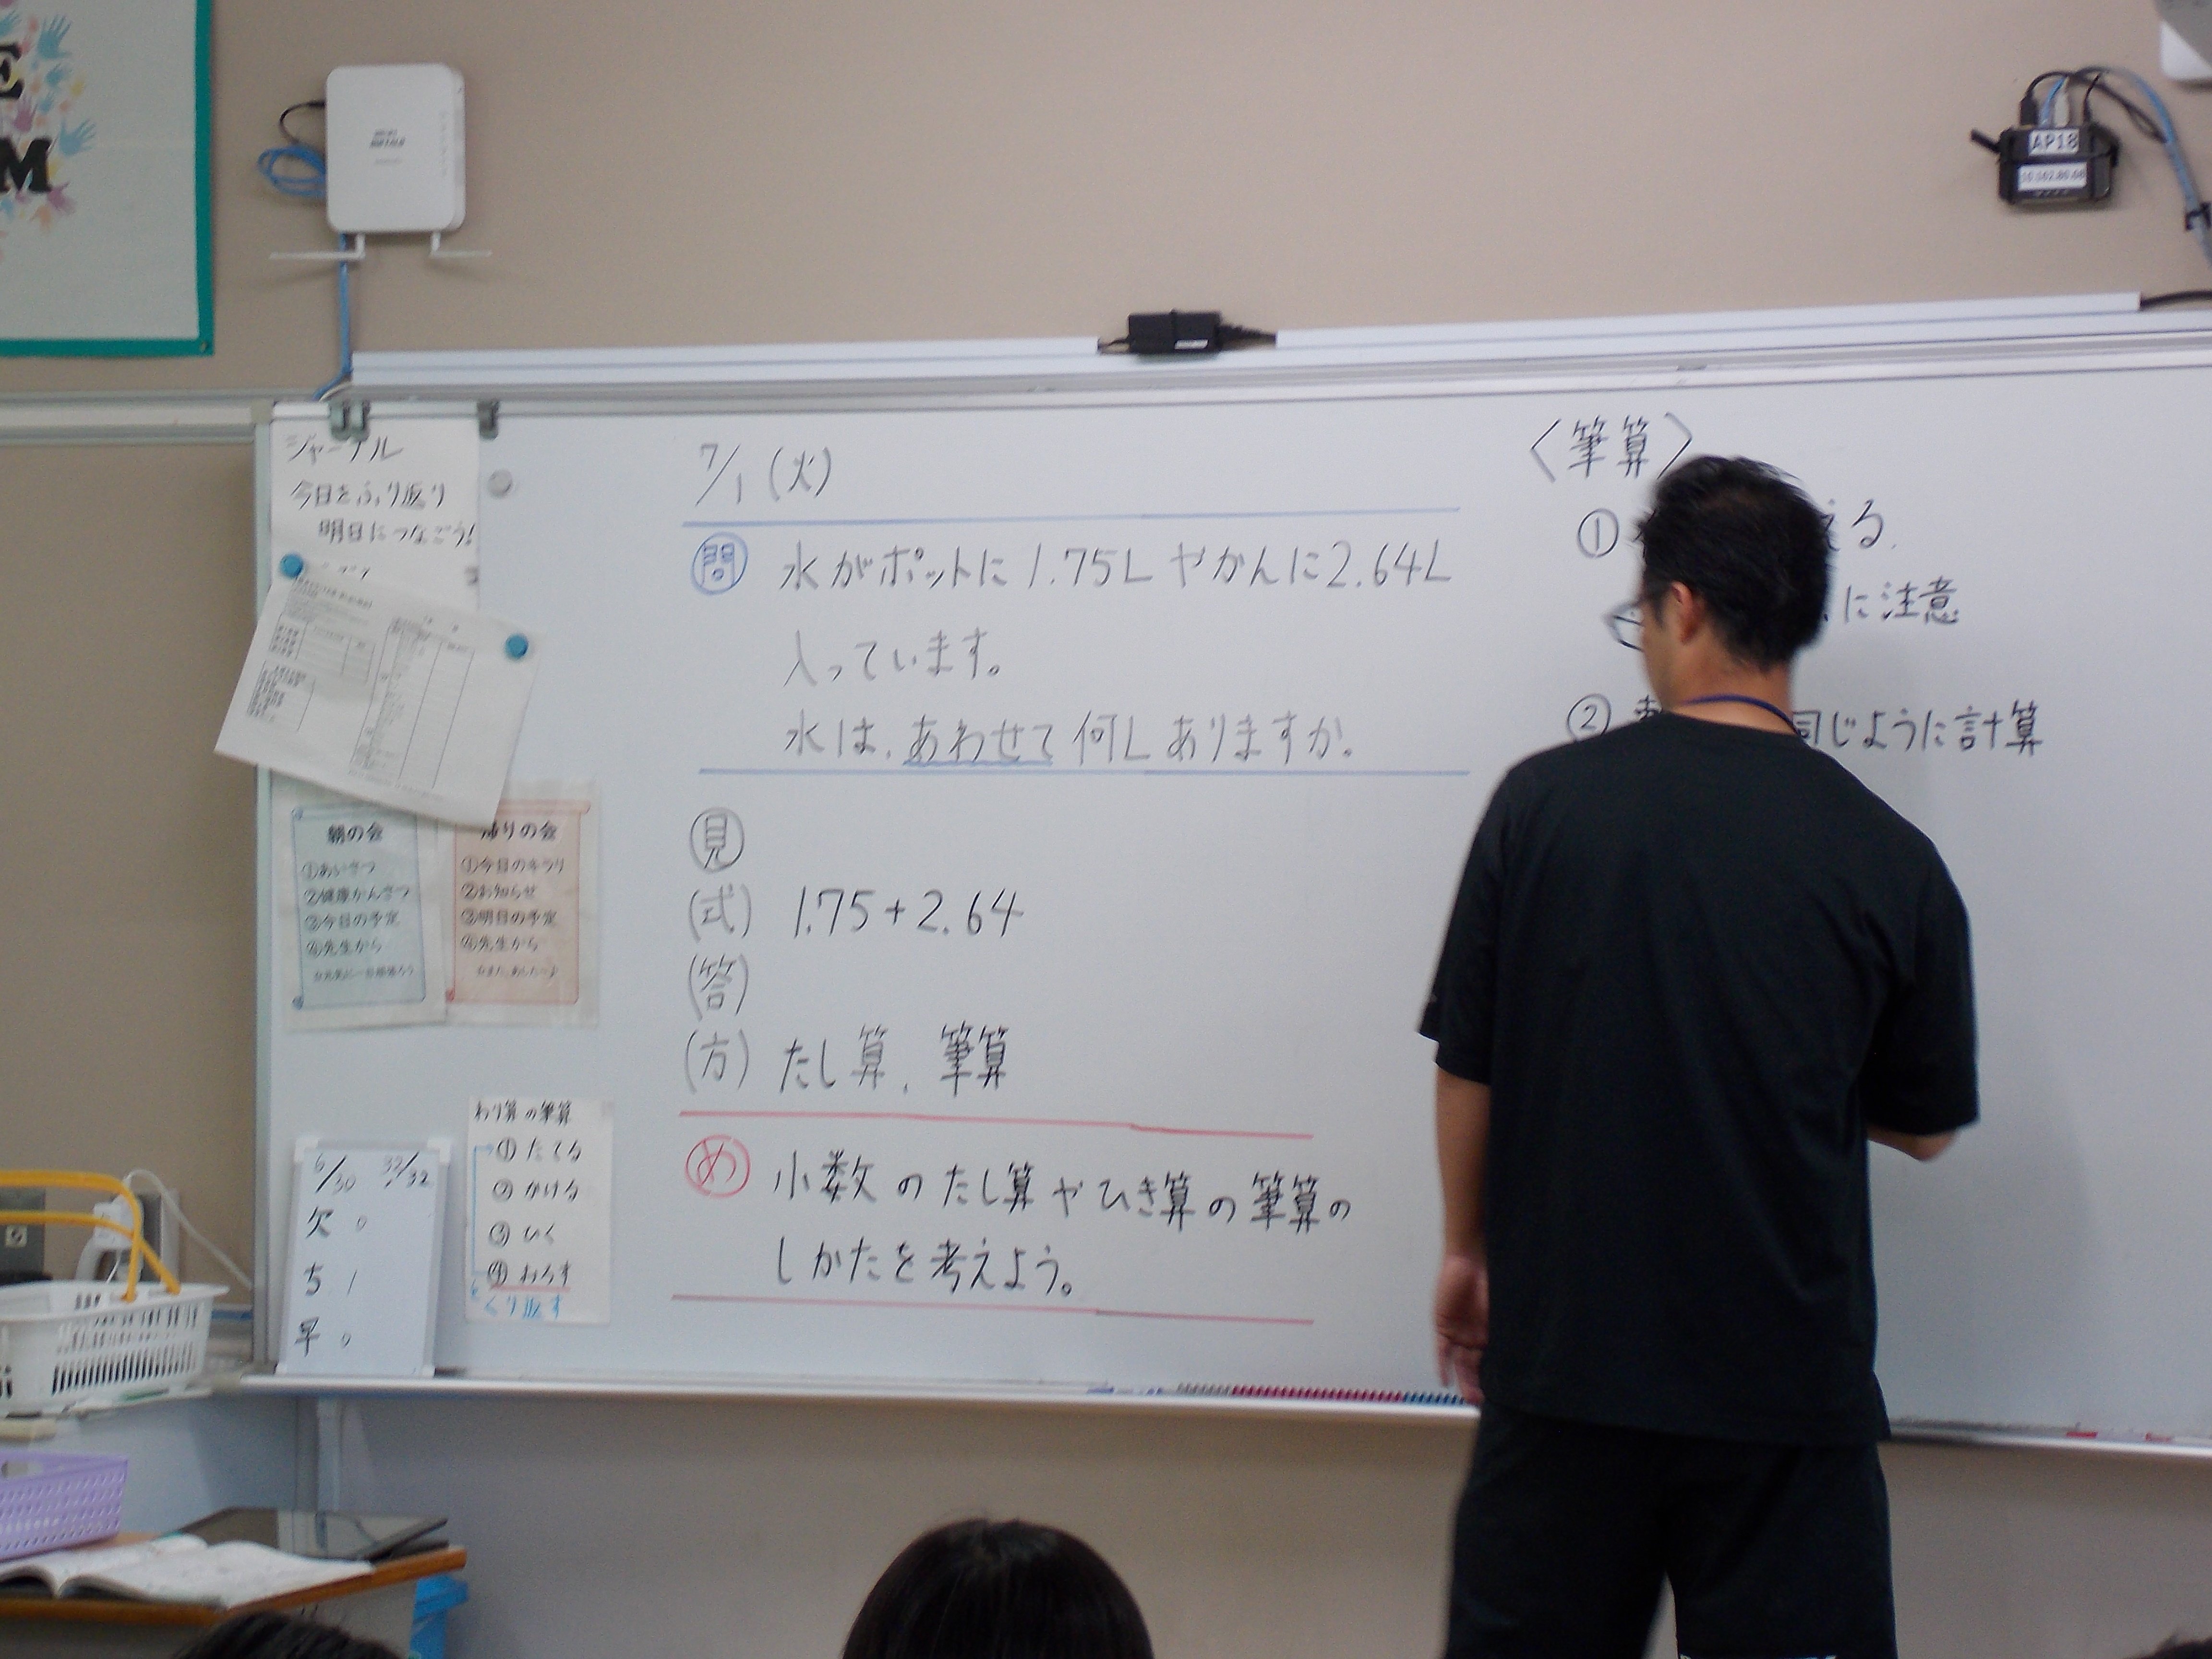 E
M
AP18
ジャーナル
今日をふり返り
明日につなごう!
7/1(火)
問 水がポットに1.75L やかんに2.64L
入っています。
水は、あわせて何Lありますか。
見
(式) 1.75+2.64
(答)
(方) たし算、筆算
め 小数のたし算やひき算の筆算の
しかたを考えよう。
〈筆算〉
① える
に注意
② 同じように計算
朝の会
①あいさつ
②健康かんさつ
③今日の予定
④先生から
帰りの会
①今日のキラリ
②お知らせ
③明日の予定
④先生から
わり算の筆算
①たてる
②かける
③ひく
④おろす
くり返す
6/30 32/32
欠 0
ち 1
早 0